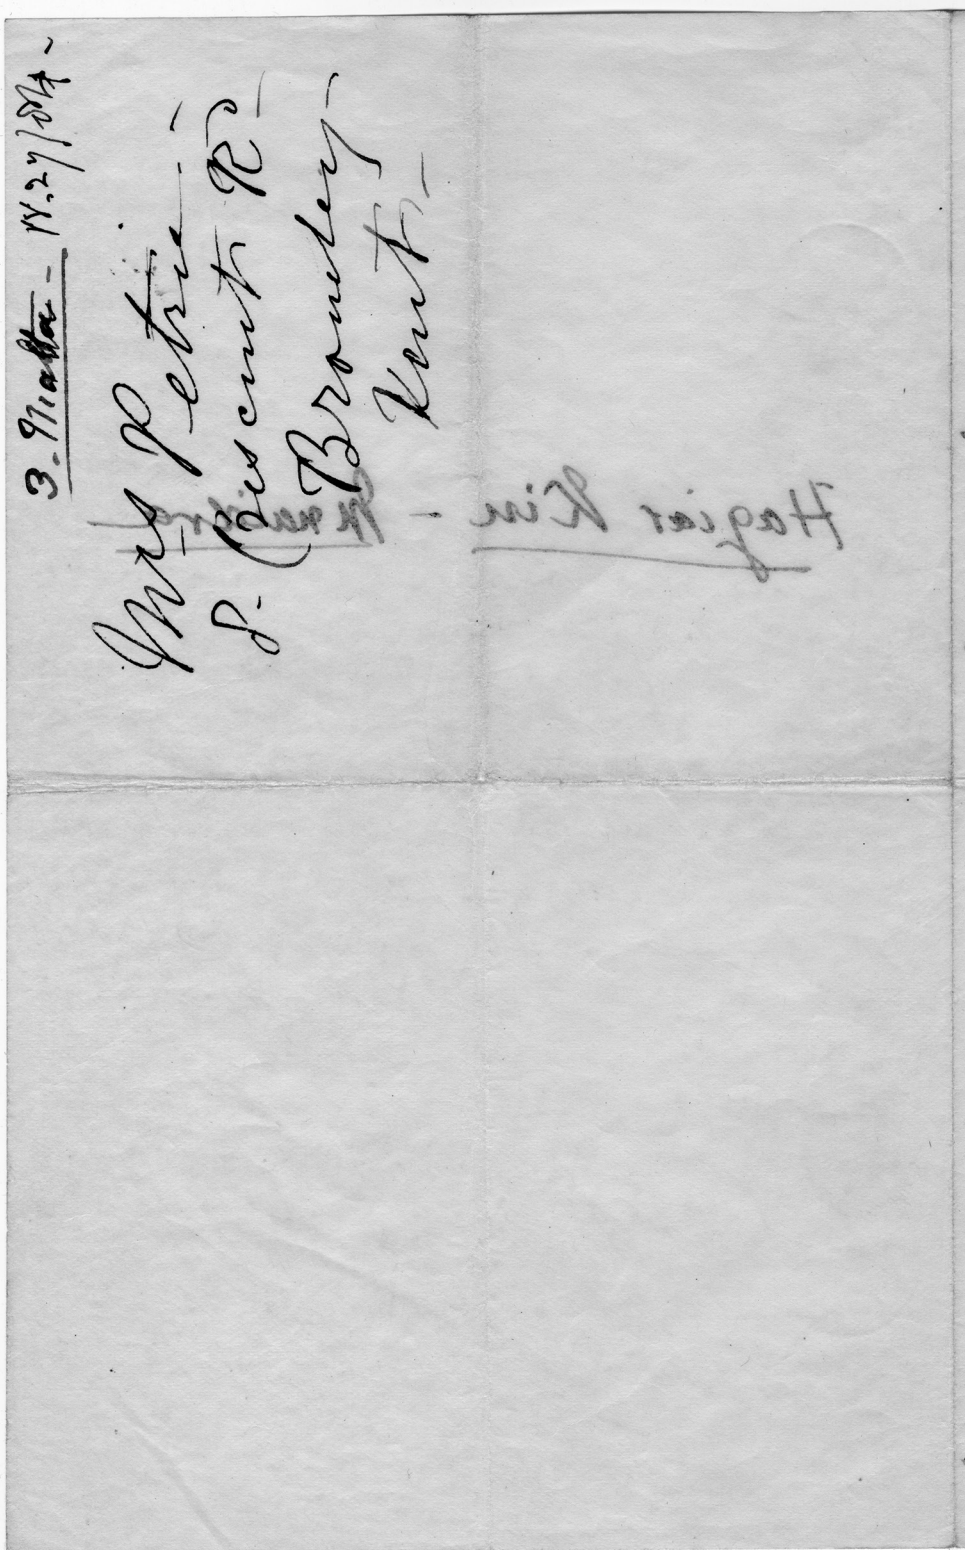 3. Malta -
Mrs Petrie -
8. Crescent Rd -
Bromley -
Kent -
Hagiar Kim - Mnaidra